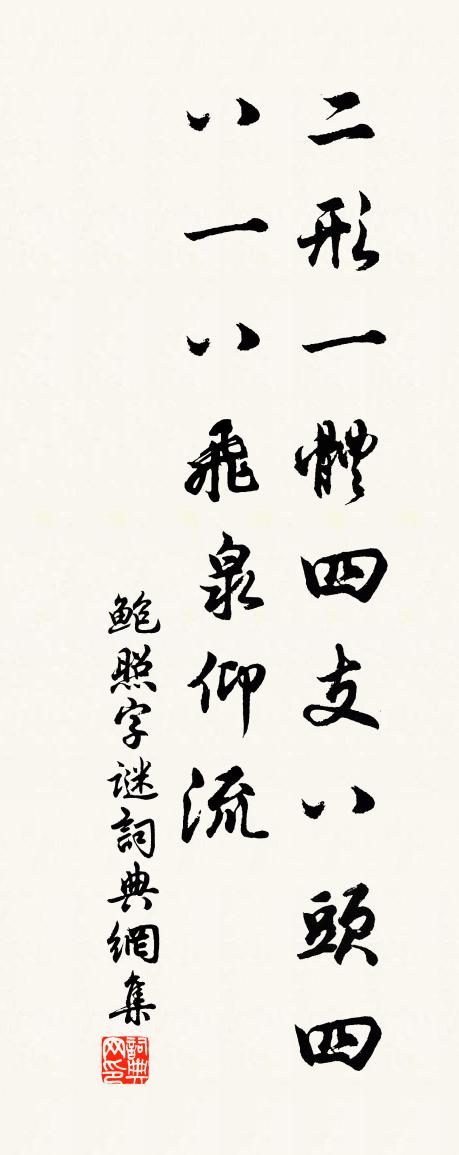 二形一體四支八頭四
八一八飛泉仰流
鮑照字謎詞典網集
詞典网印